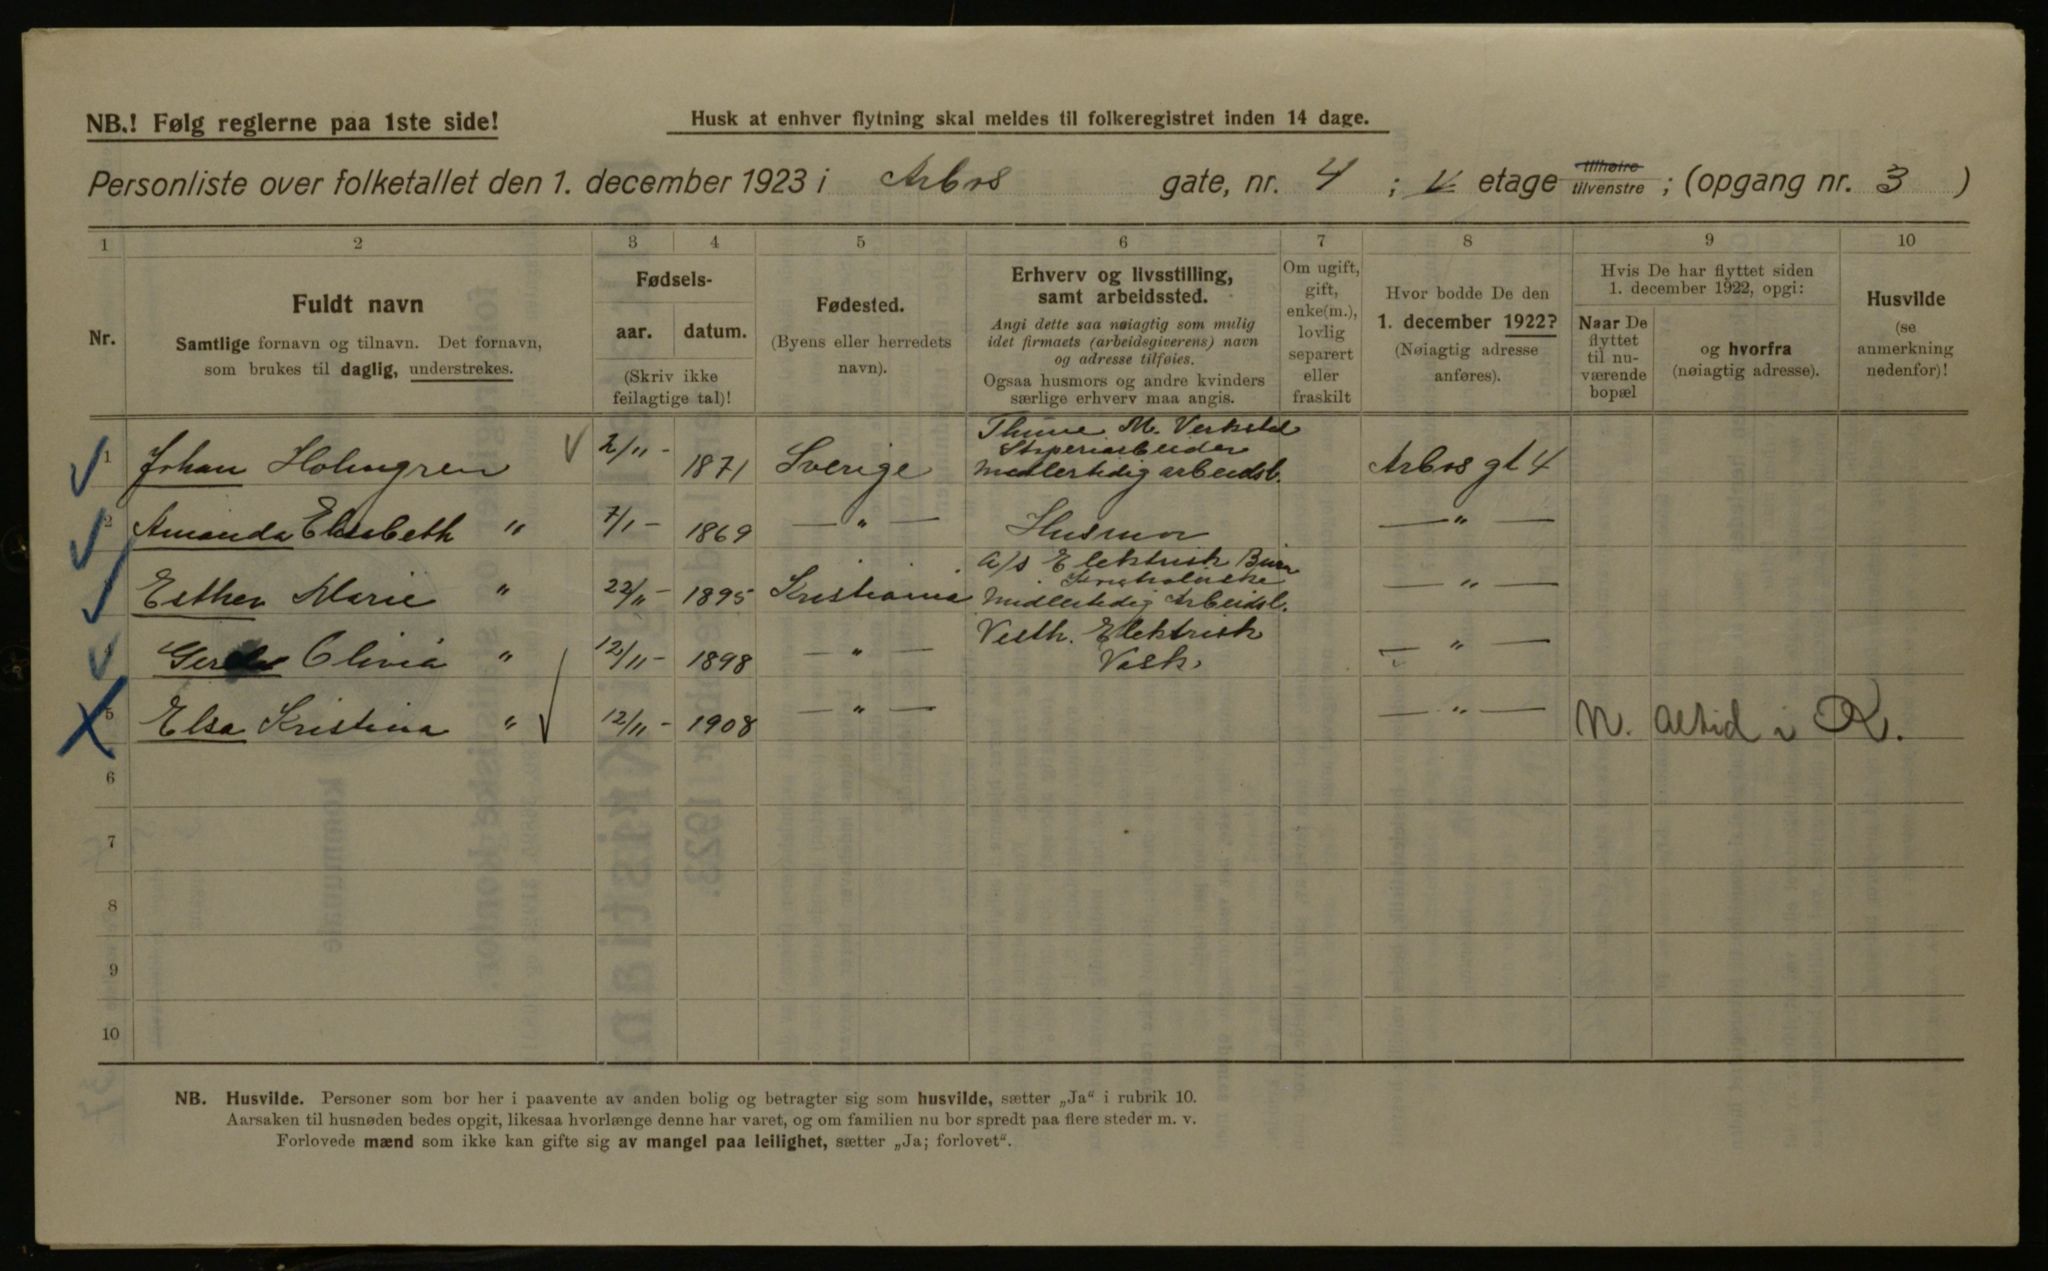 NB.! Følg reglerne paa 1ste side!
Husk at enhver flytning skal meldes til folkeregistret inden 14 dage.
Personliste over folketallet den 1. december 1923 i Arbos gate, nr. 4 ; V etage tilhøire tilvenstre ; (opgang nr. 3 )
1 2 3 4 5 6 7 8 9 10
Nr.
Fuldt navn
Samtlige fornavn og tilnavn. Det fornavn,
som brukes til daglig, understrekes.
Fødsels-
aar. datum.
(Skriv ikke
feilagtige tal)!
Fødested.
(Byens eller herredets
navn).
Erhverv og livsstilling,
samt arbeidssted.
Angi dette saa nøiagtig som mulig
idet firmaets (arbeidsgiverens) navn
og adresse tilføies.
Ogsaa husmors og andre kvinders
særlige erhverv maa angis.
Om ugift,
gift,
enke(m.),
lovlig
separert
eller
fraskilt
Hvor bodde De den
1. december 1922?
(Nøiagtig adresse
anføres).
Hvis De har flyttet siden
1. december 1922, opgi:
Naar De
flyttet
til nu-
værende
bopæl
og hvorfra
(nøiagtig adresse).
Husvilde
(se
anmerkning
nedenfor)!
Thune M. Verksted
Støperiarbeider
1 Johan Holmgren 2/11 - 1871 Sverige Medlertidig arbeidsl. Arbos gt 4
2 Amanda Elisabeth " 7/1 - 1869 — " — Husmor — " —
A/S Elektrisk
3 Esther Marie " 22/11 - 1895 Kristiania Medlertidig Arbeidsl. — " —
Vesth. Elektrisk
4 Gerda Olivia " 12/11 - 1898 — " — Vask. — " —
5 Elsa Kristina " 12/11 - 1908 — " — — " — N. altid i K.
6
7
8
9
10
NB. Husvilde. Personer som bor her i paavente av anden bolig og betragter sig som husvilde, sætter „Ja“ i rubrik 10.
Aarsaken til husnøden bedes opgit, likesaa hvorlænge denne har varet, og om familien nu bor spredt paa flere steder m. v.
Forlovede mænd som ikke kan gifte sig av mangel paa leilighet, sætter „Ja; forlovet“.